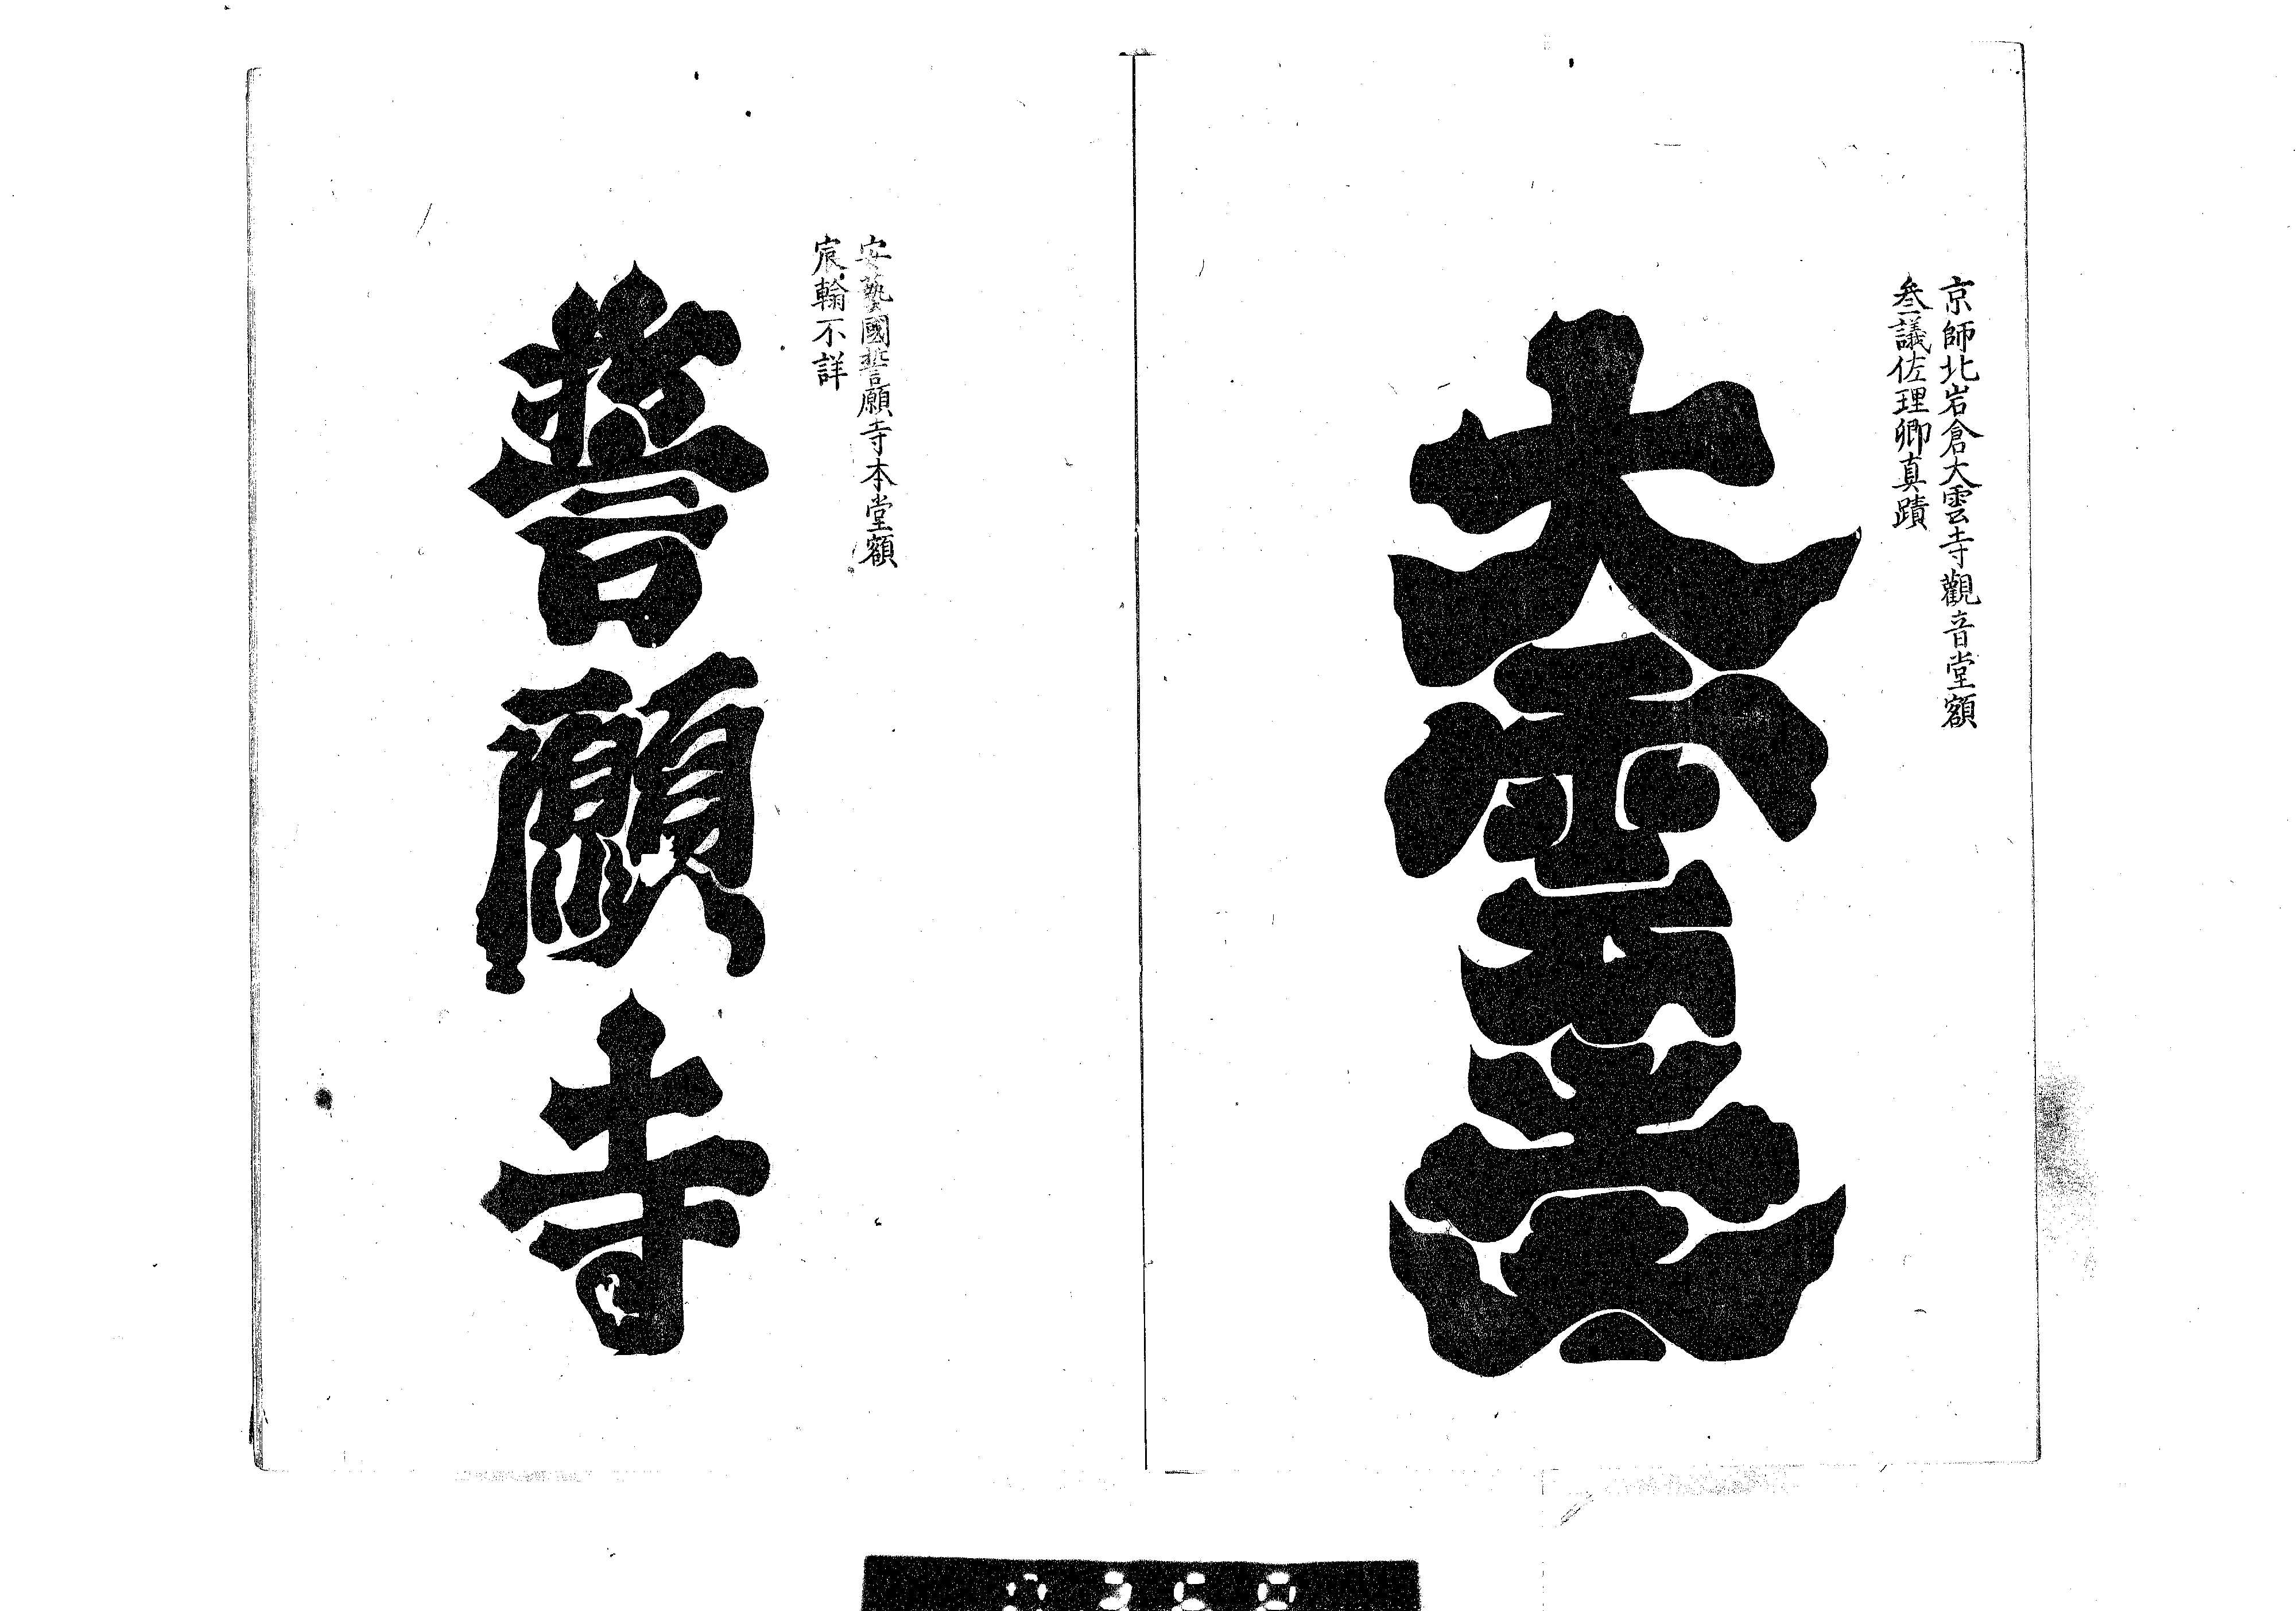 京師北岩倉大雲寺觀音堂額
叄議佐理卿真蹟
大雲
安藝國誓願寺本堂額
宸翰不詳
誓願寺